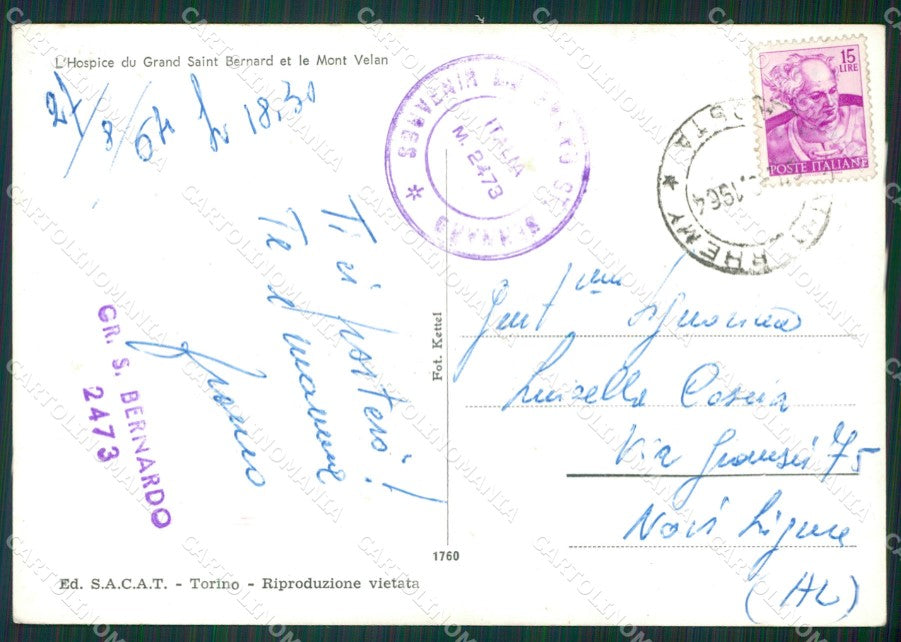 L'Hospice du Grand Saint Bernard et le Mont Velan
27/8/64 h 18,30
SOUVENIR GRAND ST BERNARD
ITALIA
M. 2473
15
LIRE
POSTE ITALIANE
RHEMY AOSTA
1964
Ti ci porterò!
Te e mamma
Franco
GR. S. BERNARDO
2473
Fot. Kettel
Gent.ma Signorina
Luisella Coscia
Via Gramsci 75
Novi Ligure
(AL)
1760
Ed. S.A.C.A.T. - Torino - Riproduzione vietata
CARTOLINOMANIA